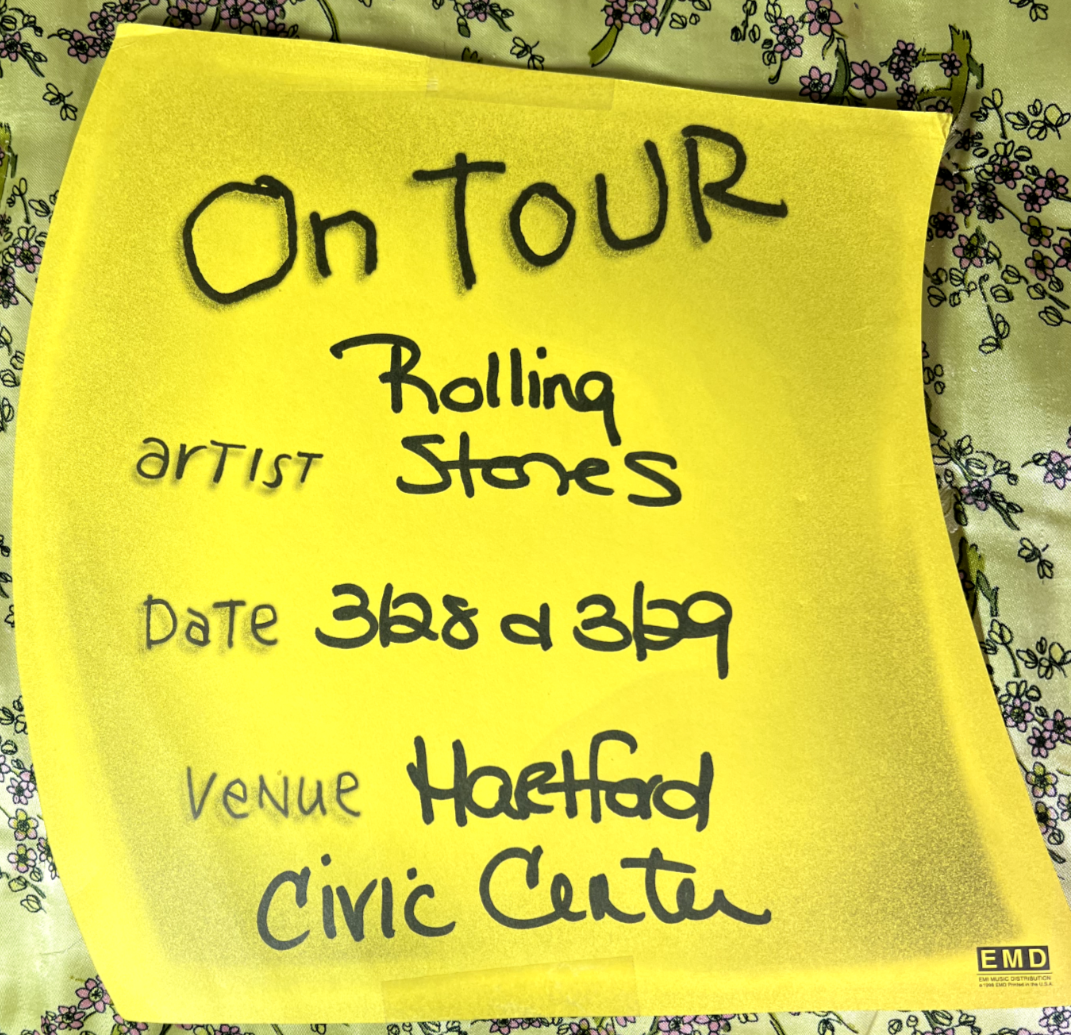 On TOUR
Rolling
arTIST Stones
DaTE 3/28 & 3/29
VeNue Hartford
Civic Center
EMD
EMI MUSIC DISTRIBUTION
©1998 EMD Printed in the U.S.A.